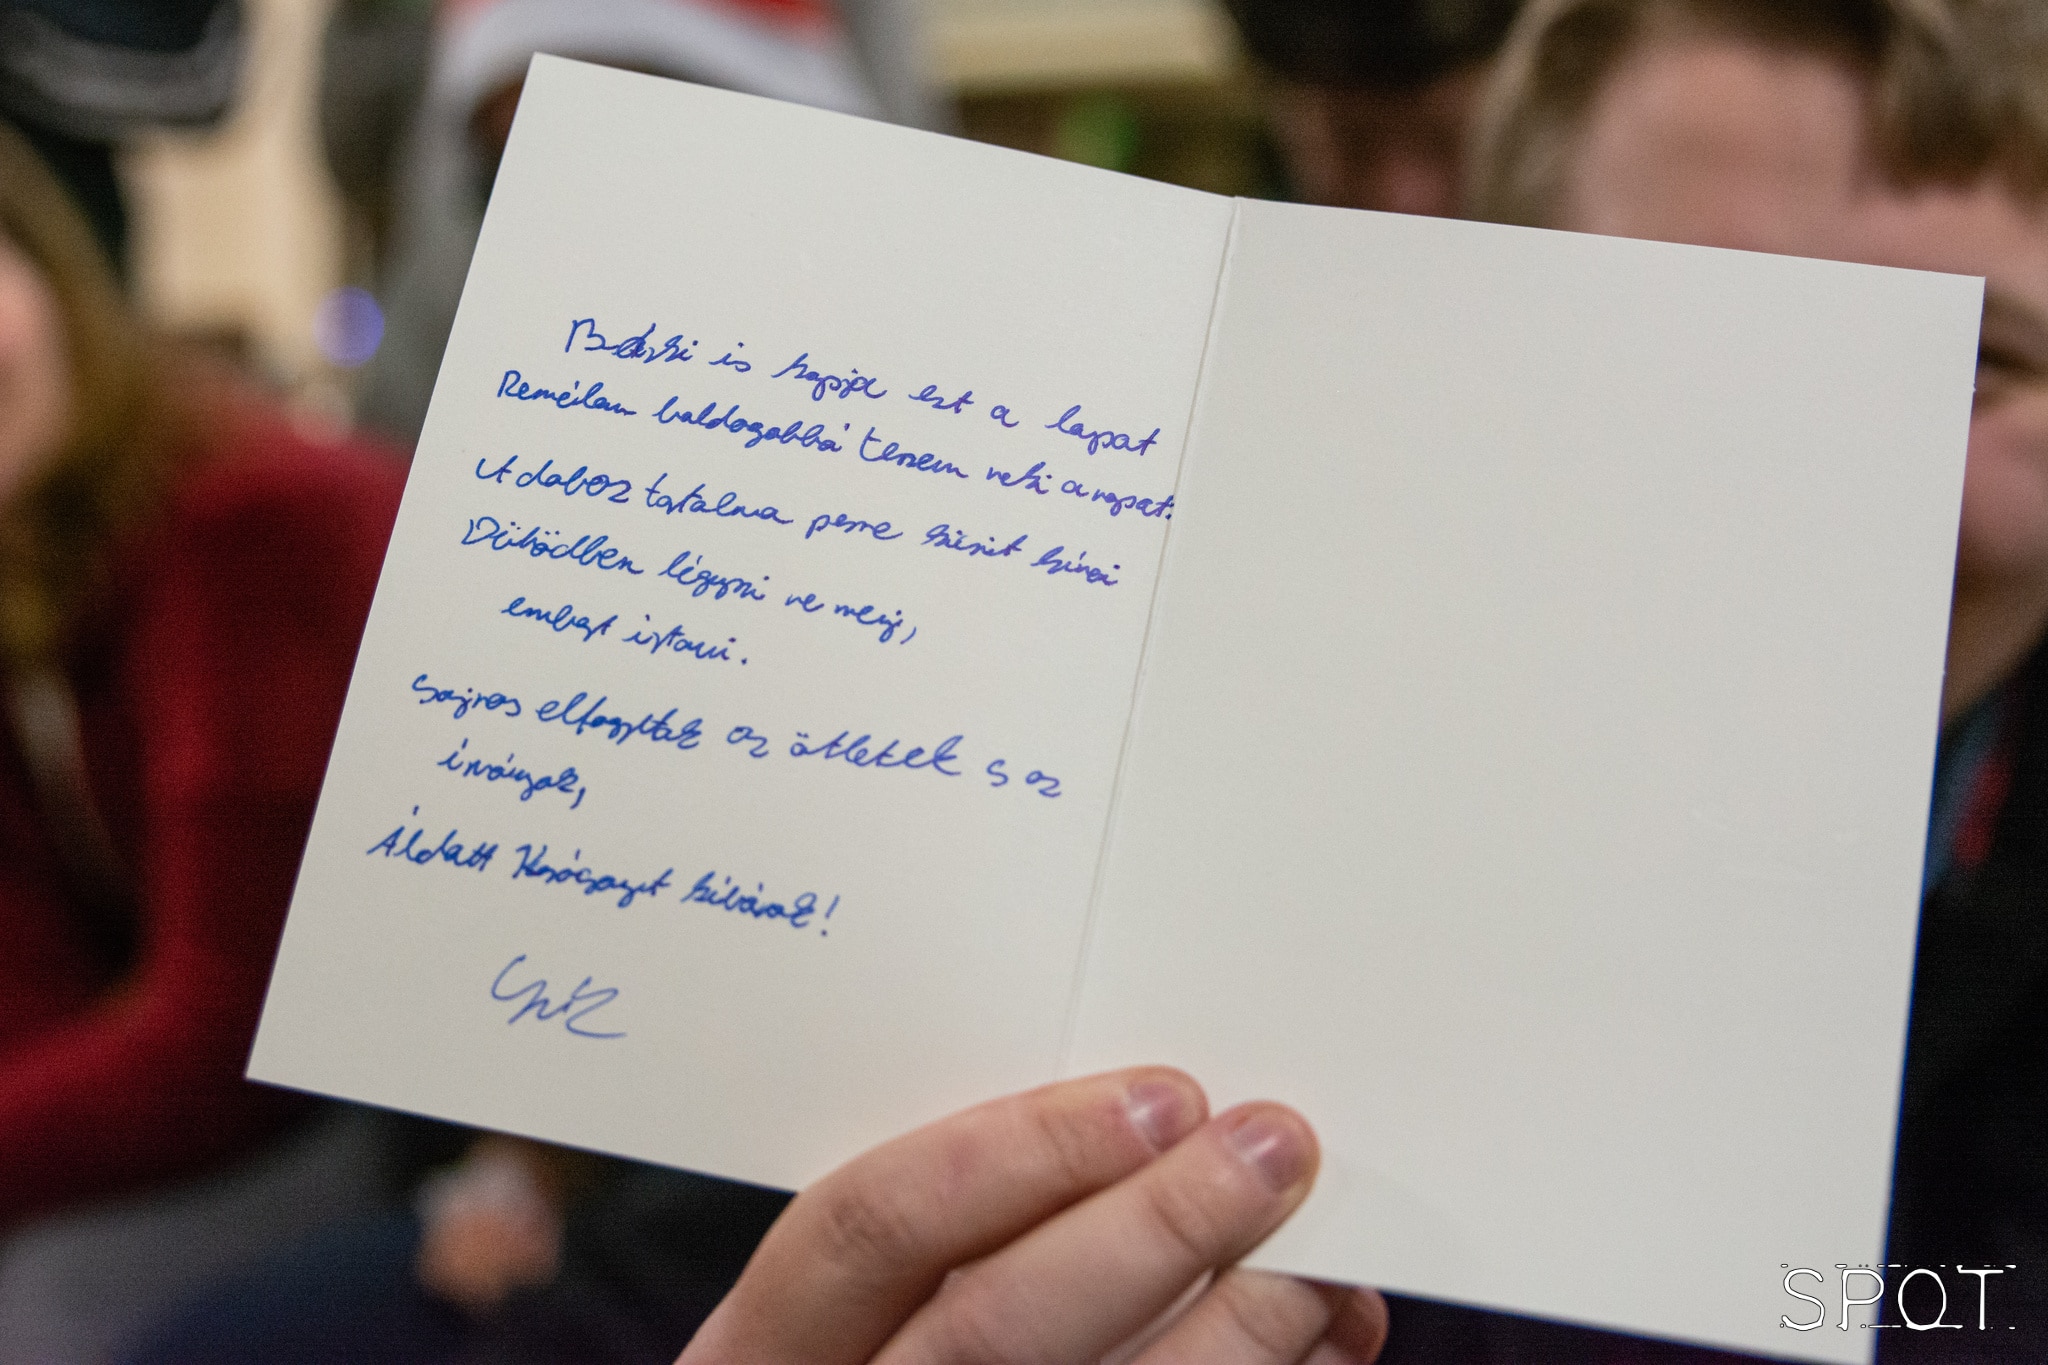 is kapja ezt a lapat
Remélem boldogabbá teszem neki a napat:
A doboz tartalma persze kicsit kínai
Dühödben légyszi ne menj,
embert irtani.
Sajnos elfogytak az ötletek s az
írványak,
Áldott Karácsonyt kívának!
SPOT